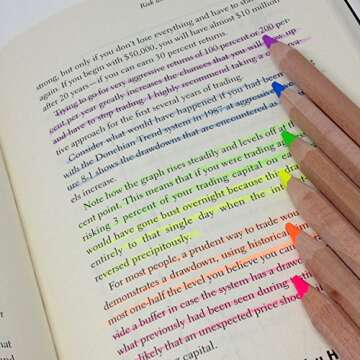 Risk
strong, but only if you don't lose everything and have to sta
again. If you begin with $50,000, you will have almost $10 million
after 20 years—if you can earn 30 percent returns.
Trying to go for very aggressive returns of 100 percent or 200 per-
cent per year greatly increases the chances that you will blow up
and have to stop trading. I highly recommend taking a conserva-
tive approach for the first several years of trading.
Consider what would have happened if you had been
with the Donchian Trend system in 1987 at aggressive
ure 8-1 shows the drawdowns that are encountered as
els increase.
Note how the graph rises steadily and levels off at th
cent point. This means that if you were trading ag
risking 3 percent of your trading capital on ea
would have gone bust overnight because thi
entirely to that single day when the inte
reversed precipitously.
For most people, a prudent way to trade wou
demonstrates a drawdown, using historical
most one-half the level you believe you can
vide a buffer in case the system has a draw
what previously had been seen during te
likely that an unexpected price shock
ing capital.